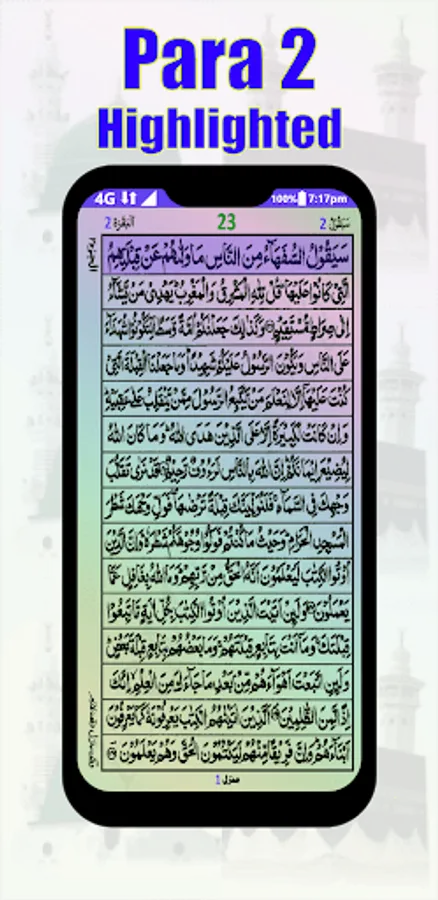 Para 2
Highlighted
4G 100% 7:17pm
سَيَقُوْلُ 2 23 اَلْبَقَرَة 2
سَيَقُوْلُ السُّفَهَآءُ مِنَ النَّاسِ مَا وَلّٰىهُمْ عَنْ قِبْلَتِهِمُ
الَّتِيْ كَانُوْا عَلَيْهَا ؕ قُلْ لِّلّٰهِ الْمَشْرِقُ وَالْمَغْرِبُ ؕ يَهْدِيْ مَنْ يَّشَآءُ
اِلٰى صِرَاطٍ مُّسْتَقِيْمٍ وَكَذٰلِكَ جَعَلْنٰكُمْ اُمَّةً وَّسَطًا لِّتَكُوْنُوْا شُهَدَآءَ
عَلَى النَّاسِ وَيَكُوْنَ الرَّسُوْلُ عَلَيْكُمْ شَهِيْدًا ؕ وَمَا جَعَلْنَا الْقِبْلَةَ الَّتِيْ
كُنْتَ عَلَيْهَآ اِلَّا لِنَعْلَمَ مَنْ يَّتَّبِعُ الرَّسُوْلَ مِمَّنْ يَّنْقَلِبُ عَلٰى عَقِبَيْهِ
وَاِنْ كَانَتْ لَكَبِيْرَةً اِلَّا عَلَى الَّذِيْنَ هَدَى اللّٰهُ ؕ وَمَا كَانَ اللّٰهُ
لِيُضِيْعَ اِيْمَانَكُمْ ؕ اِنَّ اللّٰهَ بِالنَّاسِ لَرَءُوْفٌ رَّحِيْمٌ قَدْ نَرٰى تَقَلُّبَ
وَجْهِكَ فِي السَّمَآءِ ۚ فَلَنُوَلِّيَنَّكَ قِبْلَةً تَرْضٰىهَا ۪ فَوَلِّ وَجْهَكَ شَطْرَ
الْمَسْجِدِ الْحَرَامِ ؕ وَحَيْثُ مَا كُنْتُمْ فَوَلُّوْا وُجُوْهَكُمْ شَطْرَهٗ ؕ وَاِنَّ الَّذِيْنَ
اُوْتُوا الْكِتٰبَ لَيَعْلَمُوْنَ اَنَّهُ الْحَقُّ مِنْ رَّبِّهِمْ ؕ وَمَا اللّٰهُ بِغَافِلٍ عَمَّا
يَعْمَلُوْنَ وَلَئِنْ اَتَيْتَ الَّذِيْنَ اُوْتُوا الْكِتٰبَ بِكُلِّ اٰيَةٍ مَّا تَبِعُوْا
قِبْلَتَكَ ۚ وَمَآ اَنْتَ بِتَابِعٍ قِبْلَتَهُمْ ۚ وَمَا بَعْضُهُمْ بِتَابِعٍ قِبْلَةَ بَعْضٍ ؕ
وَلَئِنِ اتَّبَعْتَ اَهْوَآءَهُمْ مِّنْۢ بَعْدِ مَا جَآءَكَ مِنَ الْعِلْمِ ۙ اِنَّكَ
اِذًا لَّمِنَ الظّٰلِمِيْنَ اَلَّذِيْنَ اٰتَيْنٰهُمُ الْكِتٰبَ يَعْرِفُوْنَهٗ كَمَا يَعْرِفُوْنَ
اَبْنَآءَهُمْ ؕ وَاِنَّ فَرِيْقًا مِّنْهُمْ لَيَكْتُمُوْنَ الْحَقَّ وَهُمْ يَعْلَمُوْنَ
منزل 1